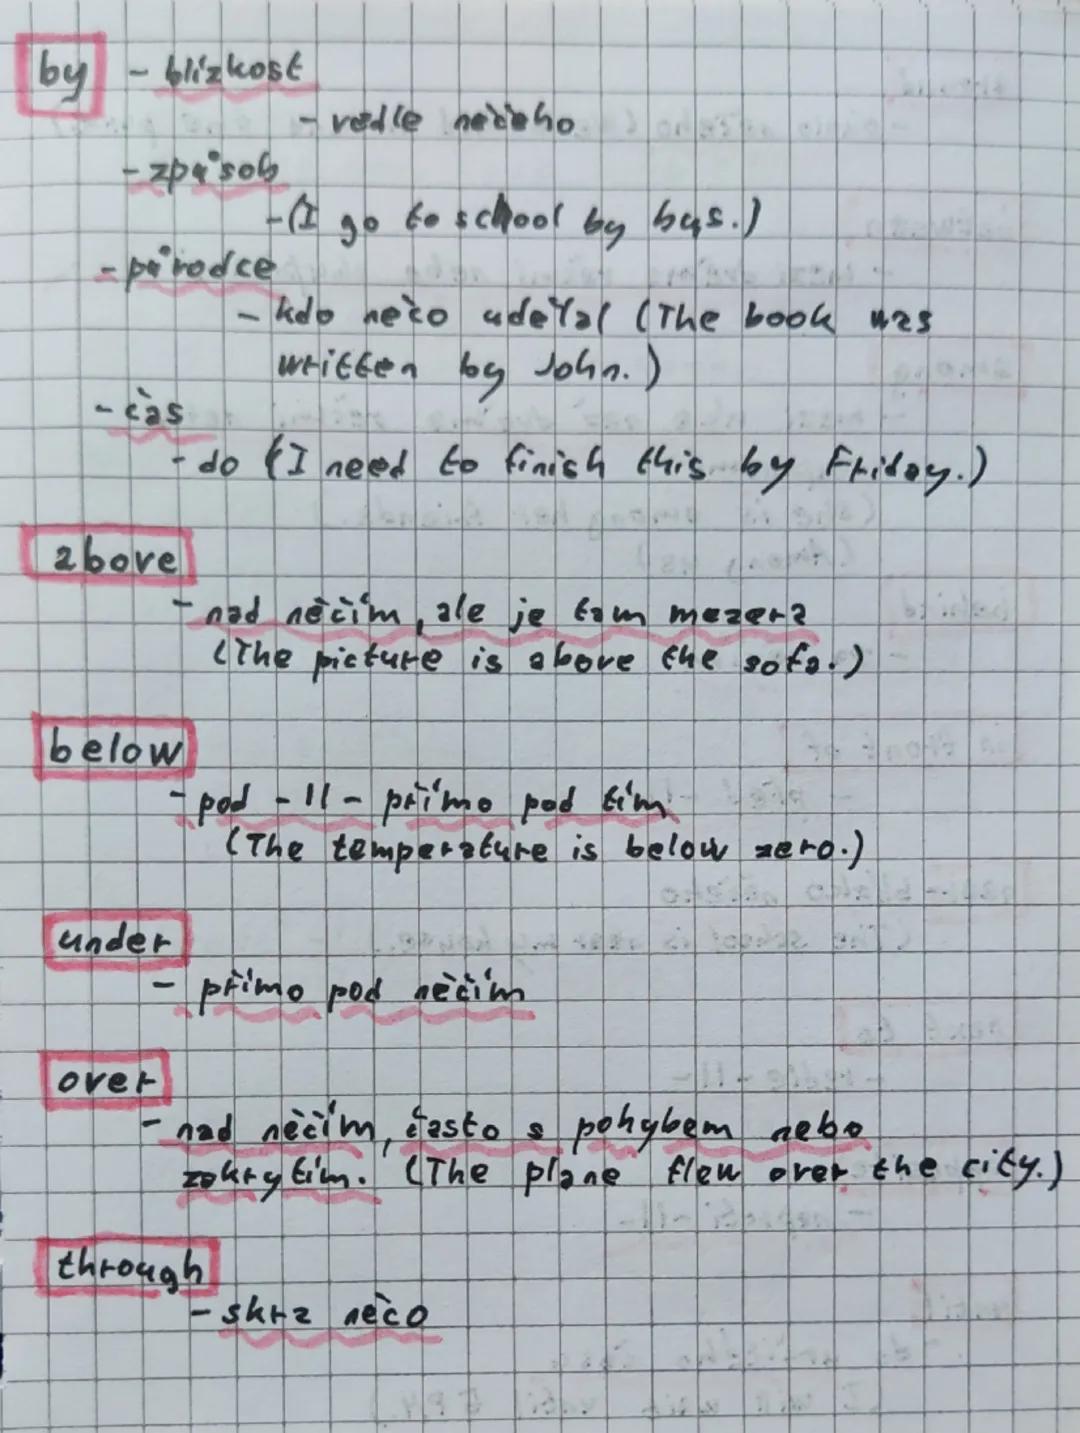 by - blízkost
- vedle něčeho
- způsob
- (I go to school by bus.)
- původce
- kdo něco udělal (The book was
written by John.)
- čas
- do (I need to finish this by Friday.)
above
- nad něčím, ale je tam mezera
(The picture is above the sofa.)
below
- pod -11- přímo pod tím
(The temperature is below zero.)
under
- přímo pod něčím
over
- nad něčím, často s pohybem nebo
zakrytím. (The plane flew over the city.)
through
- skrz něco